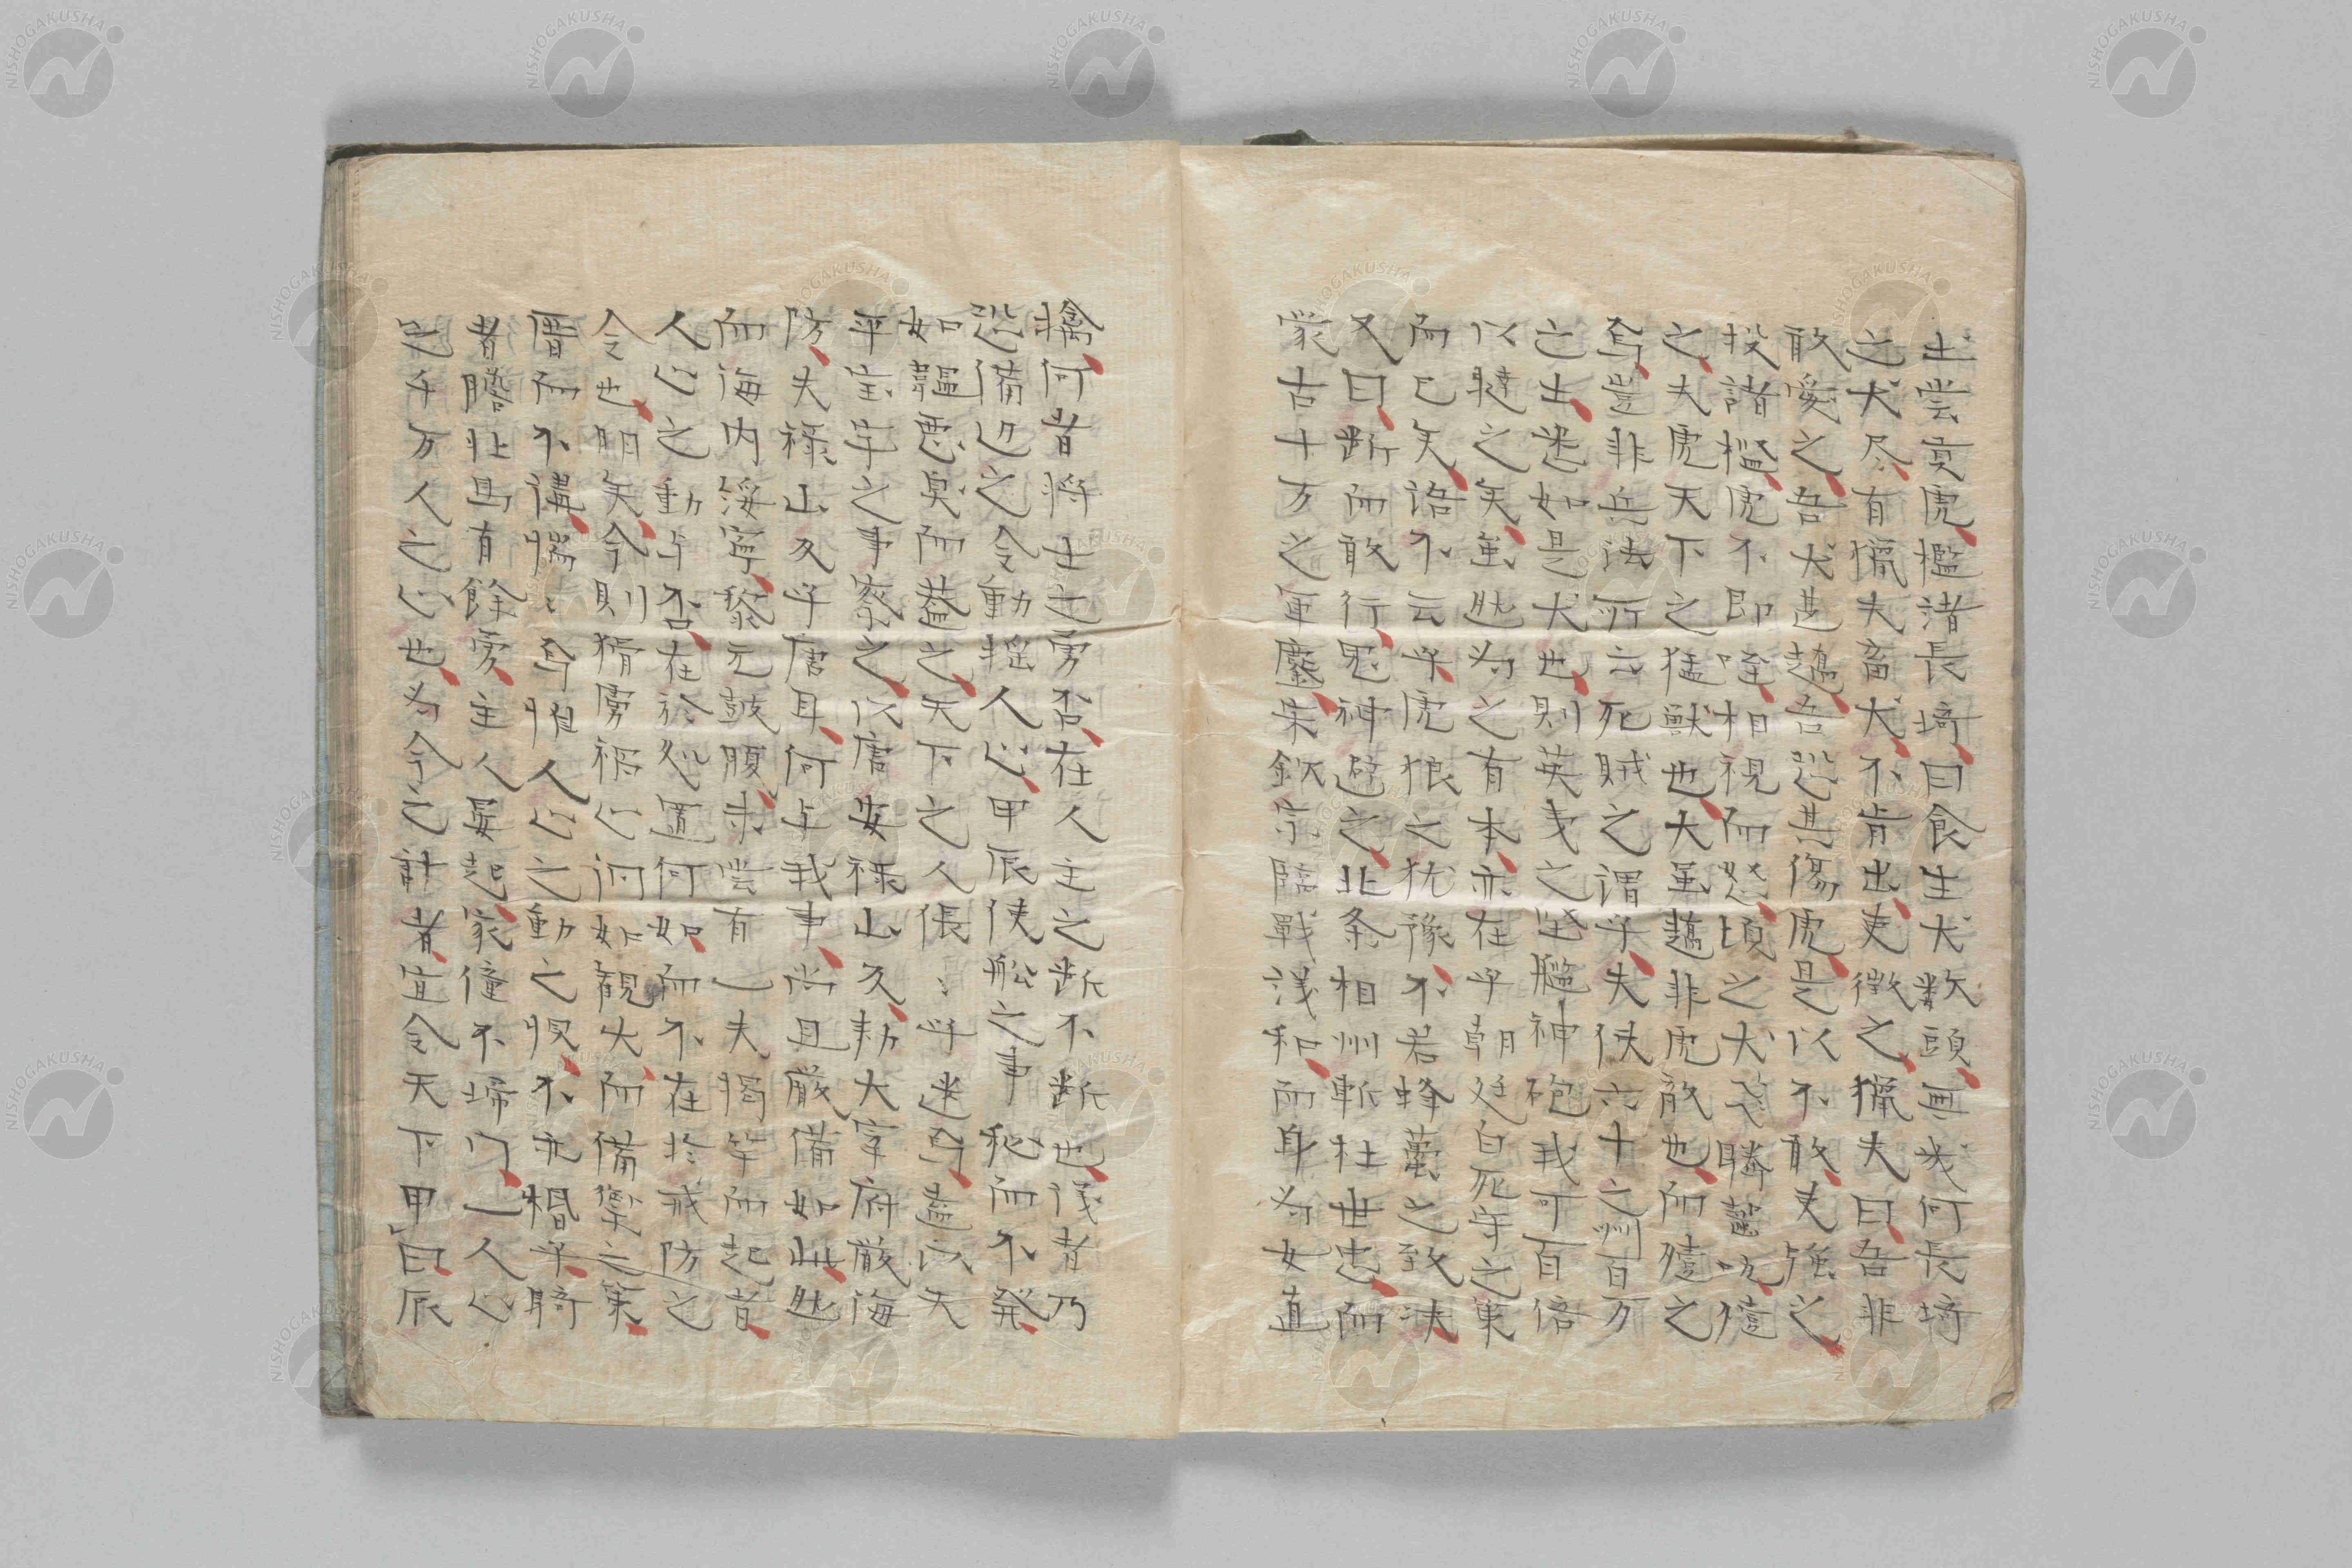 士嘗産虎、檻諸長埼、曰食生犬数頭、無幾何長埼
之犬尽、有獵夫畜犬、不肯出、吏徴之、獵夫曰、吾非
敢愛之、吾犬甚趫、吾恐其傷虎、是以不敢、吏強之、
投諸檻、虎不即咥、相視而怒、頃之犬遂勝、齧吭殪
之、夫虎天下之猛獣也、犬虽趫非虎敵也、而殪之
焉、豈非兵法所云死賊之謂乎、夫使六十之州百万
之士、悉如是犬也、則英夷之堅艦神砲我可百倍
以撻之矣、虽然為之有本、亦在乎朝廷自死守之策
而已矣、語不云乎、虎狼之犹豫、不若蜂蠆之致決、
又曰、断而敢行、鬼神避之、北条相州斬杜世忠、而
蒙古十万之軍鏖、朱欽宗臨戰議和、而身為女直
擒、何者将士之勇否、在人主之断不断也、議者乃
恐備辺之令動揺人心、甲辰使舩之事秘而不発、
如謳悪臭而蓋之、天下之人倀〻乎迷焉、盍以天
平宝字之事察之、以唐安禄山久、勅大宰府厳海
防、夫禄山久乎唐耳、何与我事、尚且厳備如此、然
而海内綏寧、黎元鼓腹、未嘗有一夫揭竿而起者、
人心之動与否、在於処置何如、而不在於戒防之
令也、明矣、今則猾虜禍心洞如観火、而備禦之策、
厝而不講、惴〻焉惟人心之動之惧、不亦椙乎、騎
者膽壮馬有餘勇、主人晏起、家僮不埽门、一人心
之千万人之心也、為今之計者、宜令天下甲曰、辰